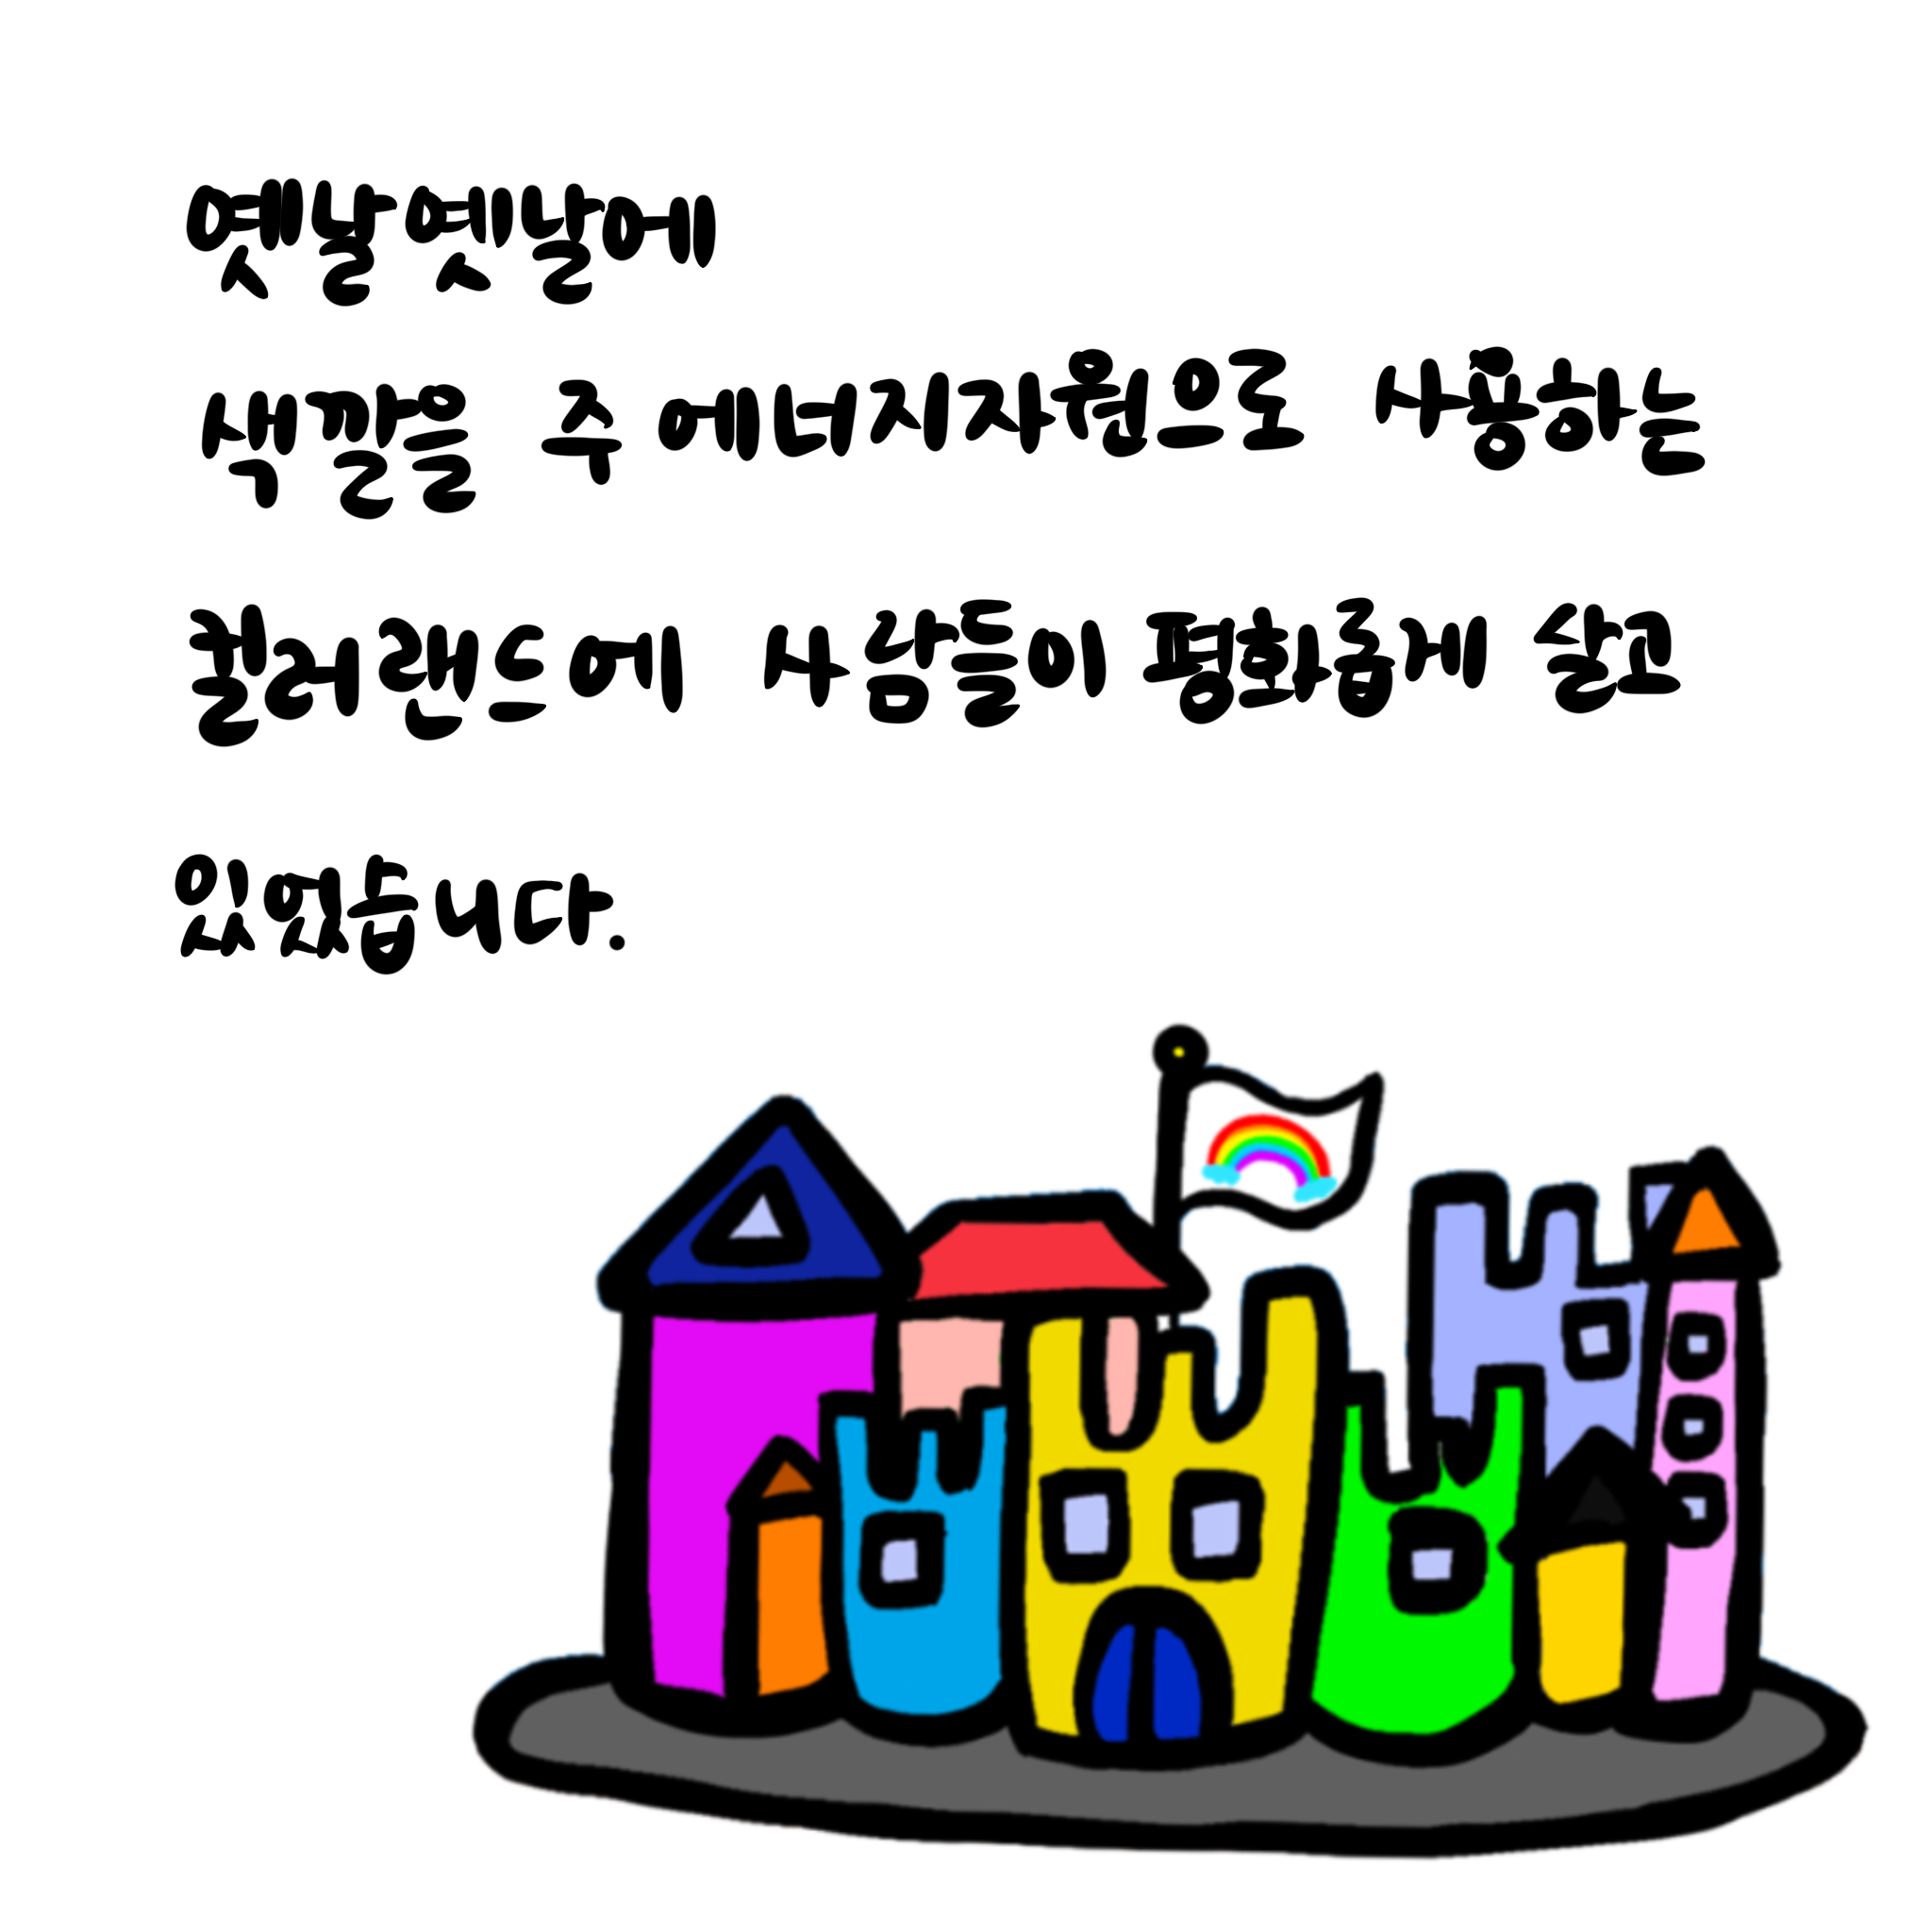 옛날옛날에
색깔을 주 에너지자원으로 사용하는
컬러랜드에 사람들이 평화롭게 살고
있었습니다.